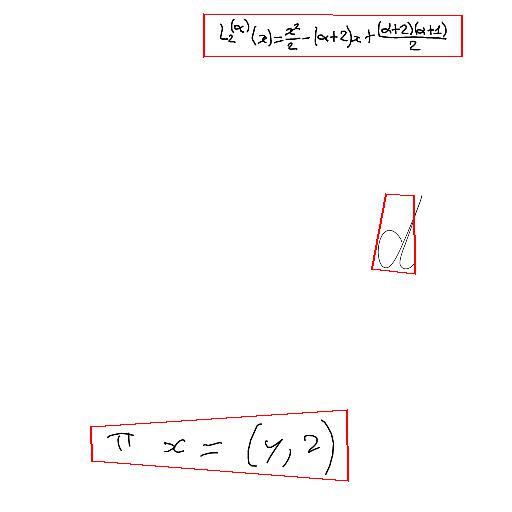 L_2^{(α)}(x)=\frac{x^2}{2}-(α+2)x+\frac{(α+2)(α+1)}{2}
α
π x = (y, z)